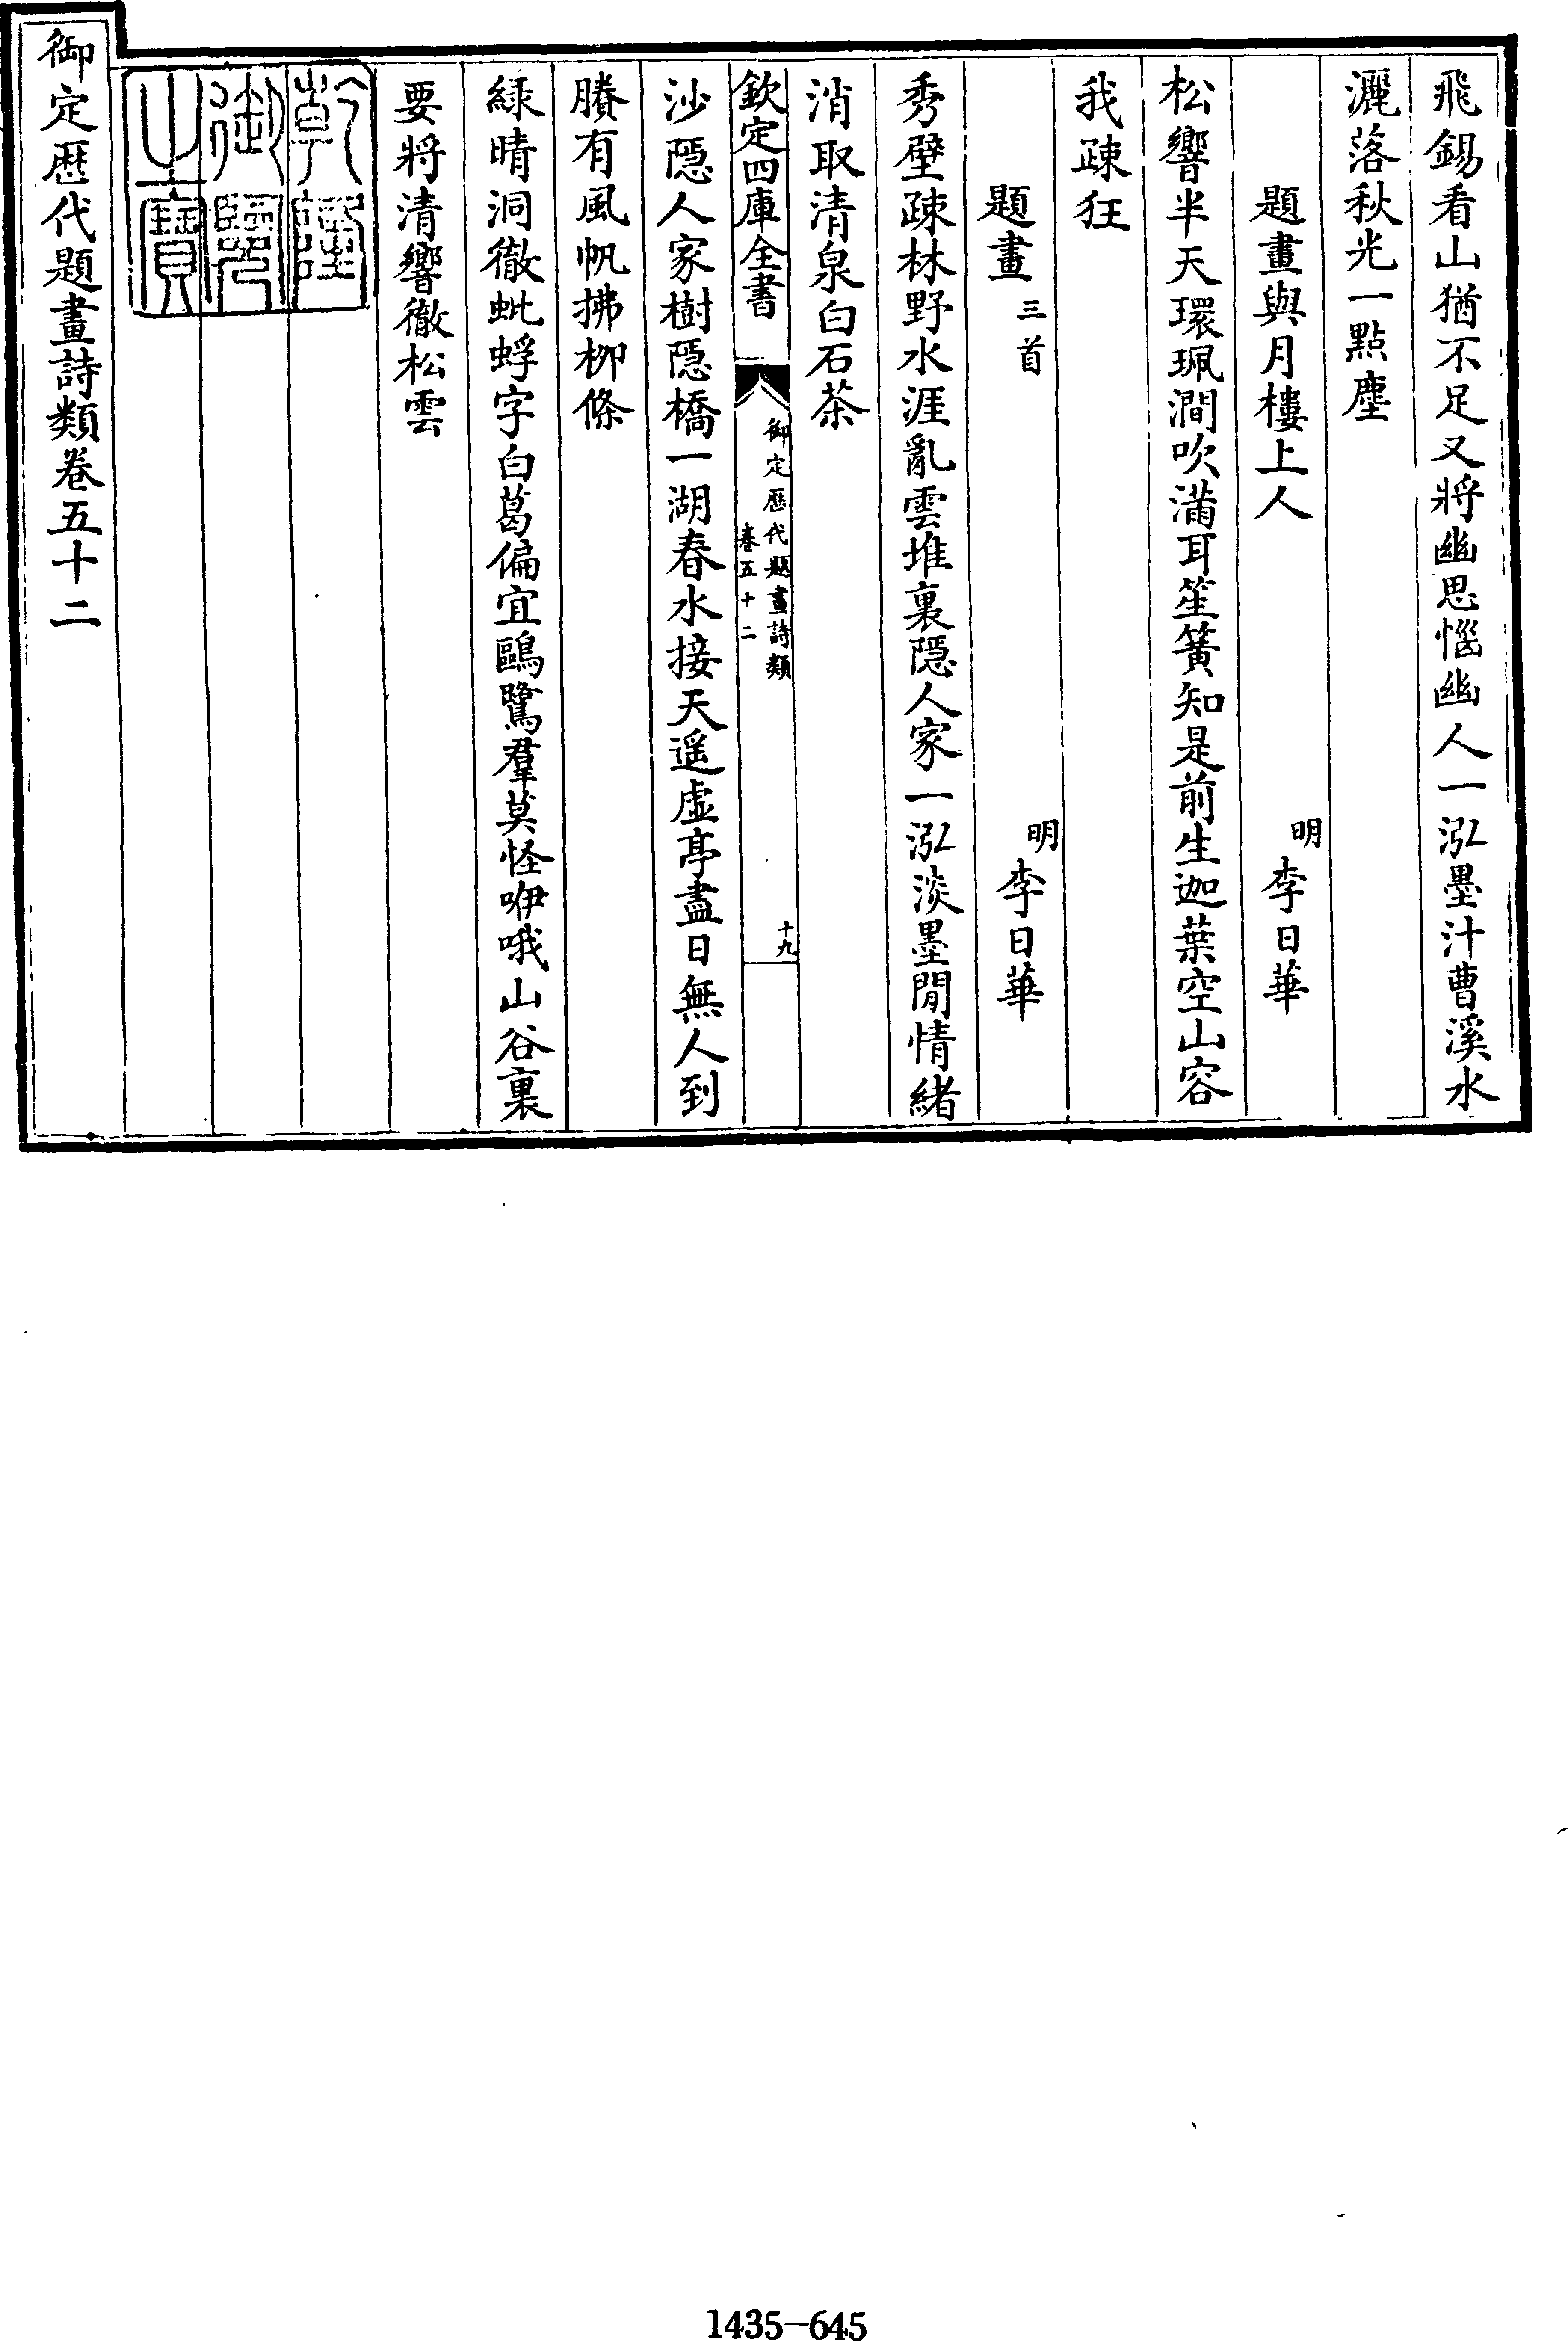 飛錫看山猶不足又將幽思惱幽人一泓墨汁曹溪水
灑落秋光一點塵
題畫與月樓上人
明
李日華
松響半天環珮澗吹滿耳笙簧知是前生迦葉空山容
我疎狂
題畫
三首
明
李日華
秀壁疎林野水涯亂雲堆裏隱人家一泓淡墨閒情緒
消取清泉白石茶
欽定四庫全書
御定歷代題畫詩類
卷五十二
十九
沙隱人家樹隱橋一湖春水接天遥虛亭盡日無人到
賸有風帆拂柳條
緑晴洞徹蚍蜉字白葛偏宜鷗鷺羣莫怪咿哦山谷裏
要將清響徹松雲
乾隆
御覽
之寶
御定歷代題畫詩類卷五十二
1435-645